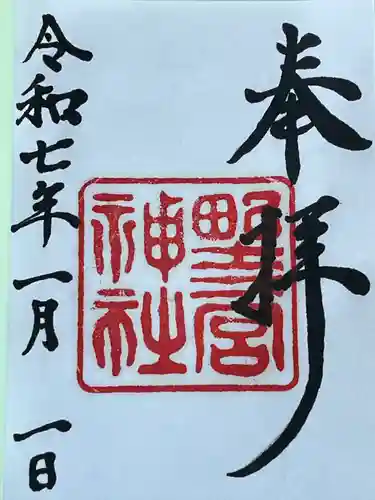 奉拝
野宮神社
令和七年一月一日